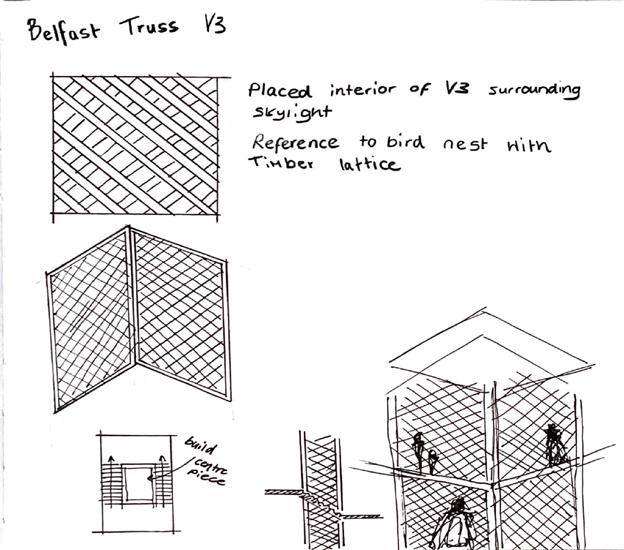 Belfast Truss V3
Placed interior of V3 surrounding
skylight
Reference to bird nest with
Timber lattice
build
centre
piece